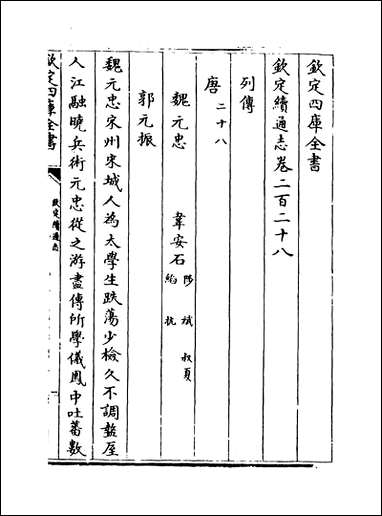 欽定四庫全書
欽定續通志卷二百二十八
列傳
唐二十八
魏元忠 韋安石 陟 斌 叔夏 縚 抗
郭元振
魏元忠宋州宋城人為太學生跌蕩少檢久不調盩厔
人江融曉兵術元忠從之游盡傳所學儀鳳中吐蕃數
欽定四庫全書
欽定續通志